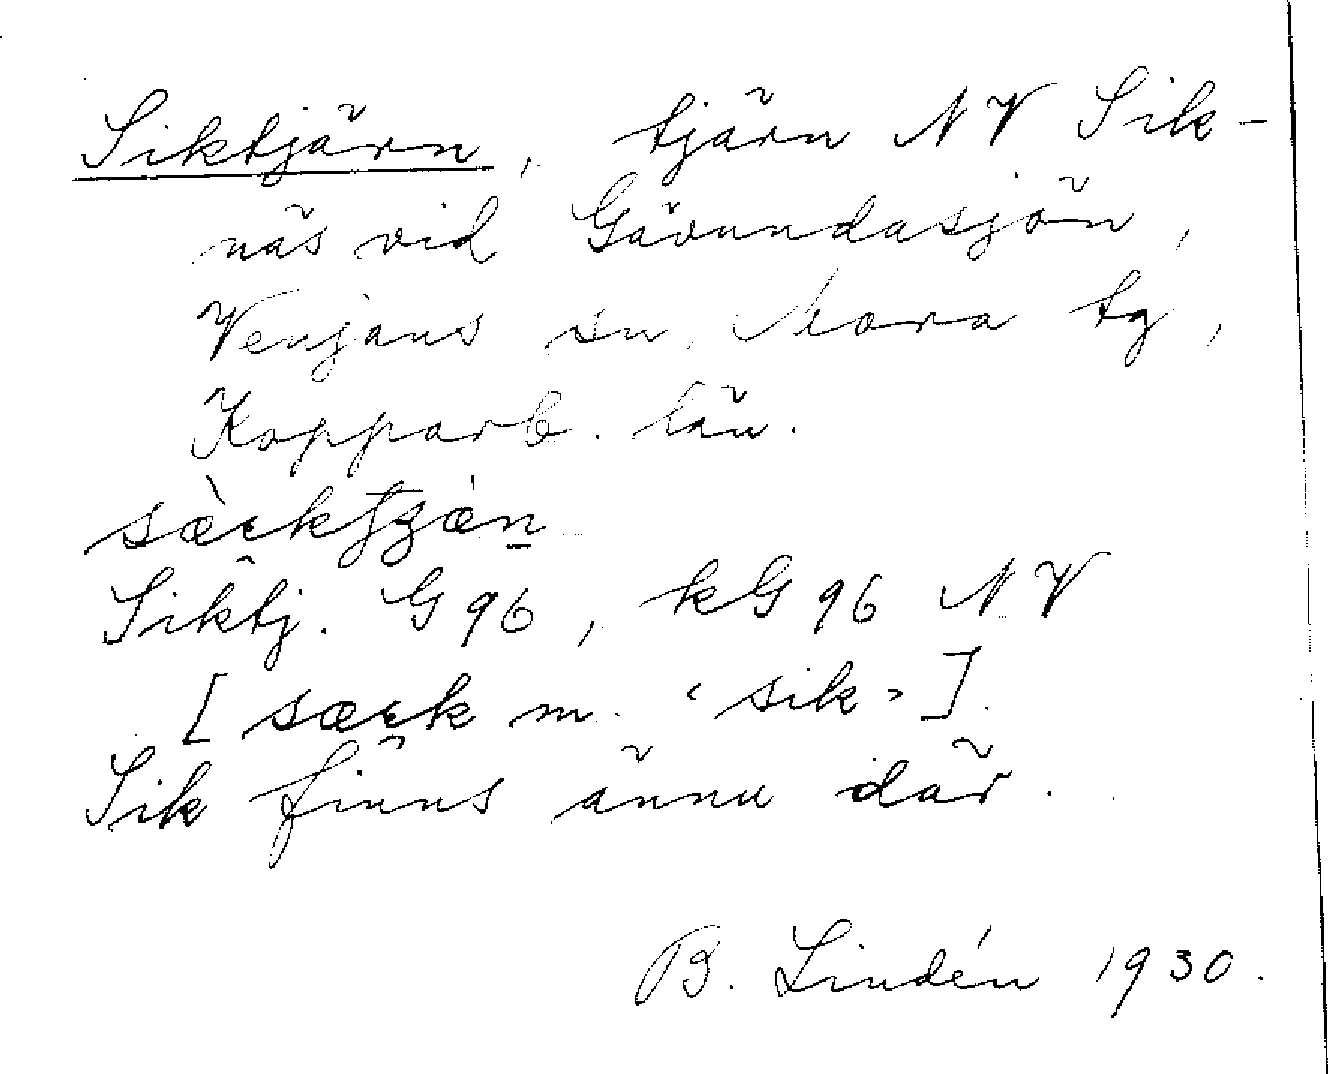 Siktjärn, tjärn NV Sik-
näs vid Gävundasjön,
Venjans sn, Mora tg,
Kopparb. län.
Siktj. G96, kG96 NV
[særk m. ‹sik›].
Sik finns ännu där.
B. Lindén 1930.